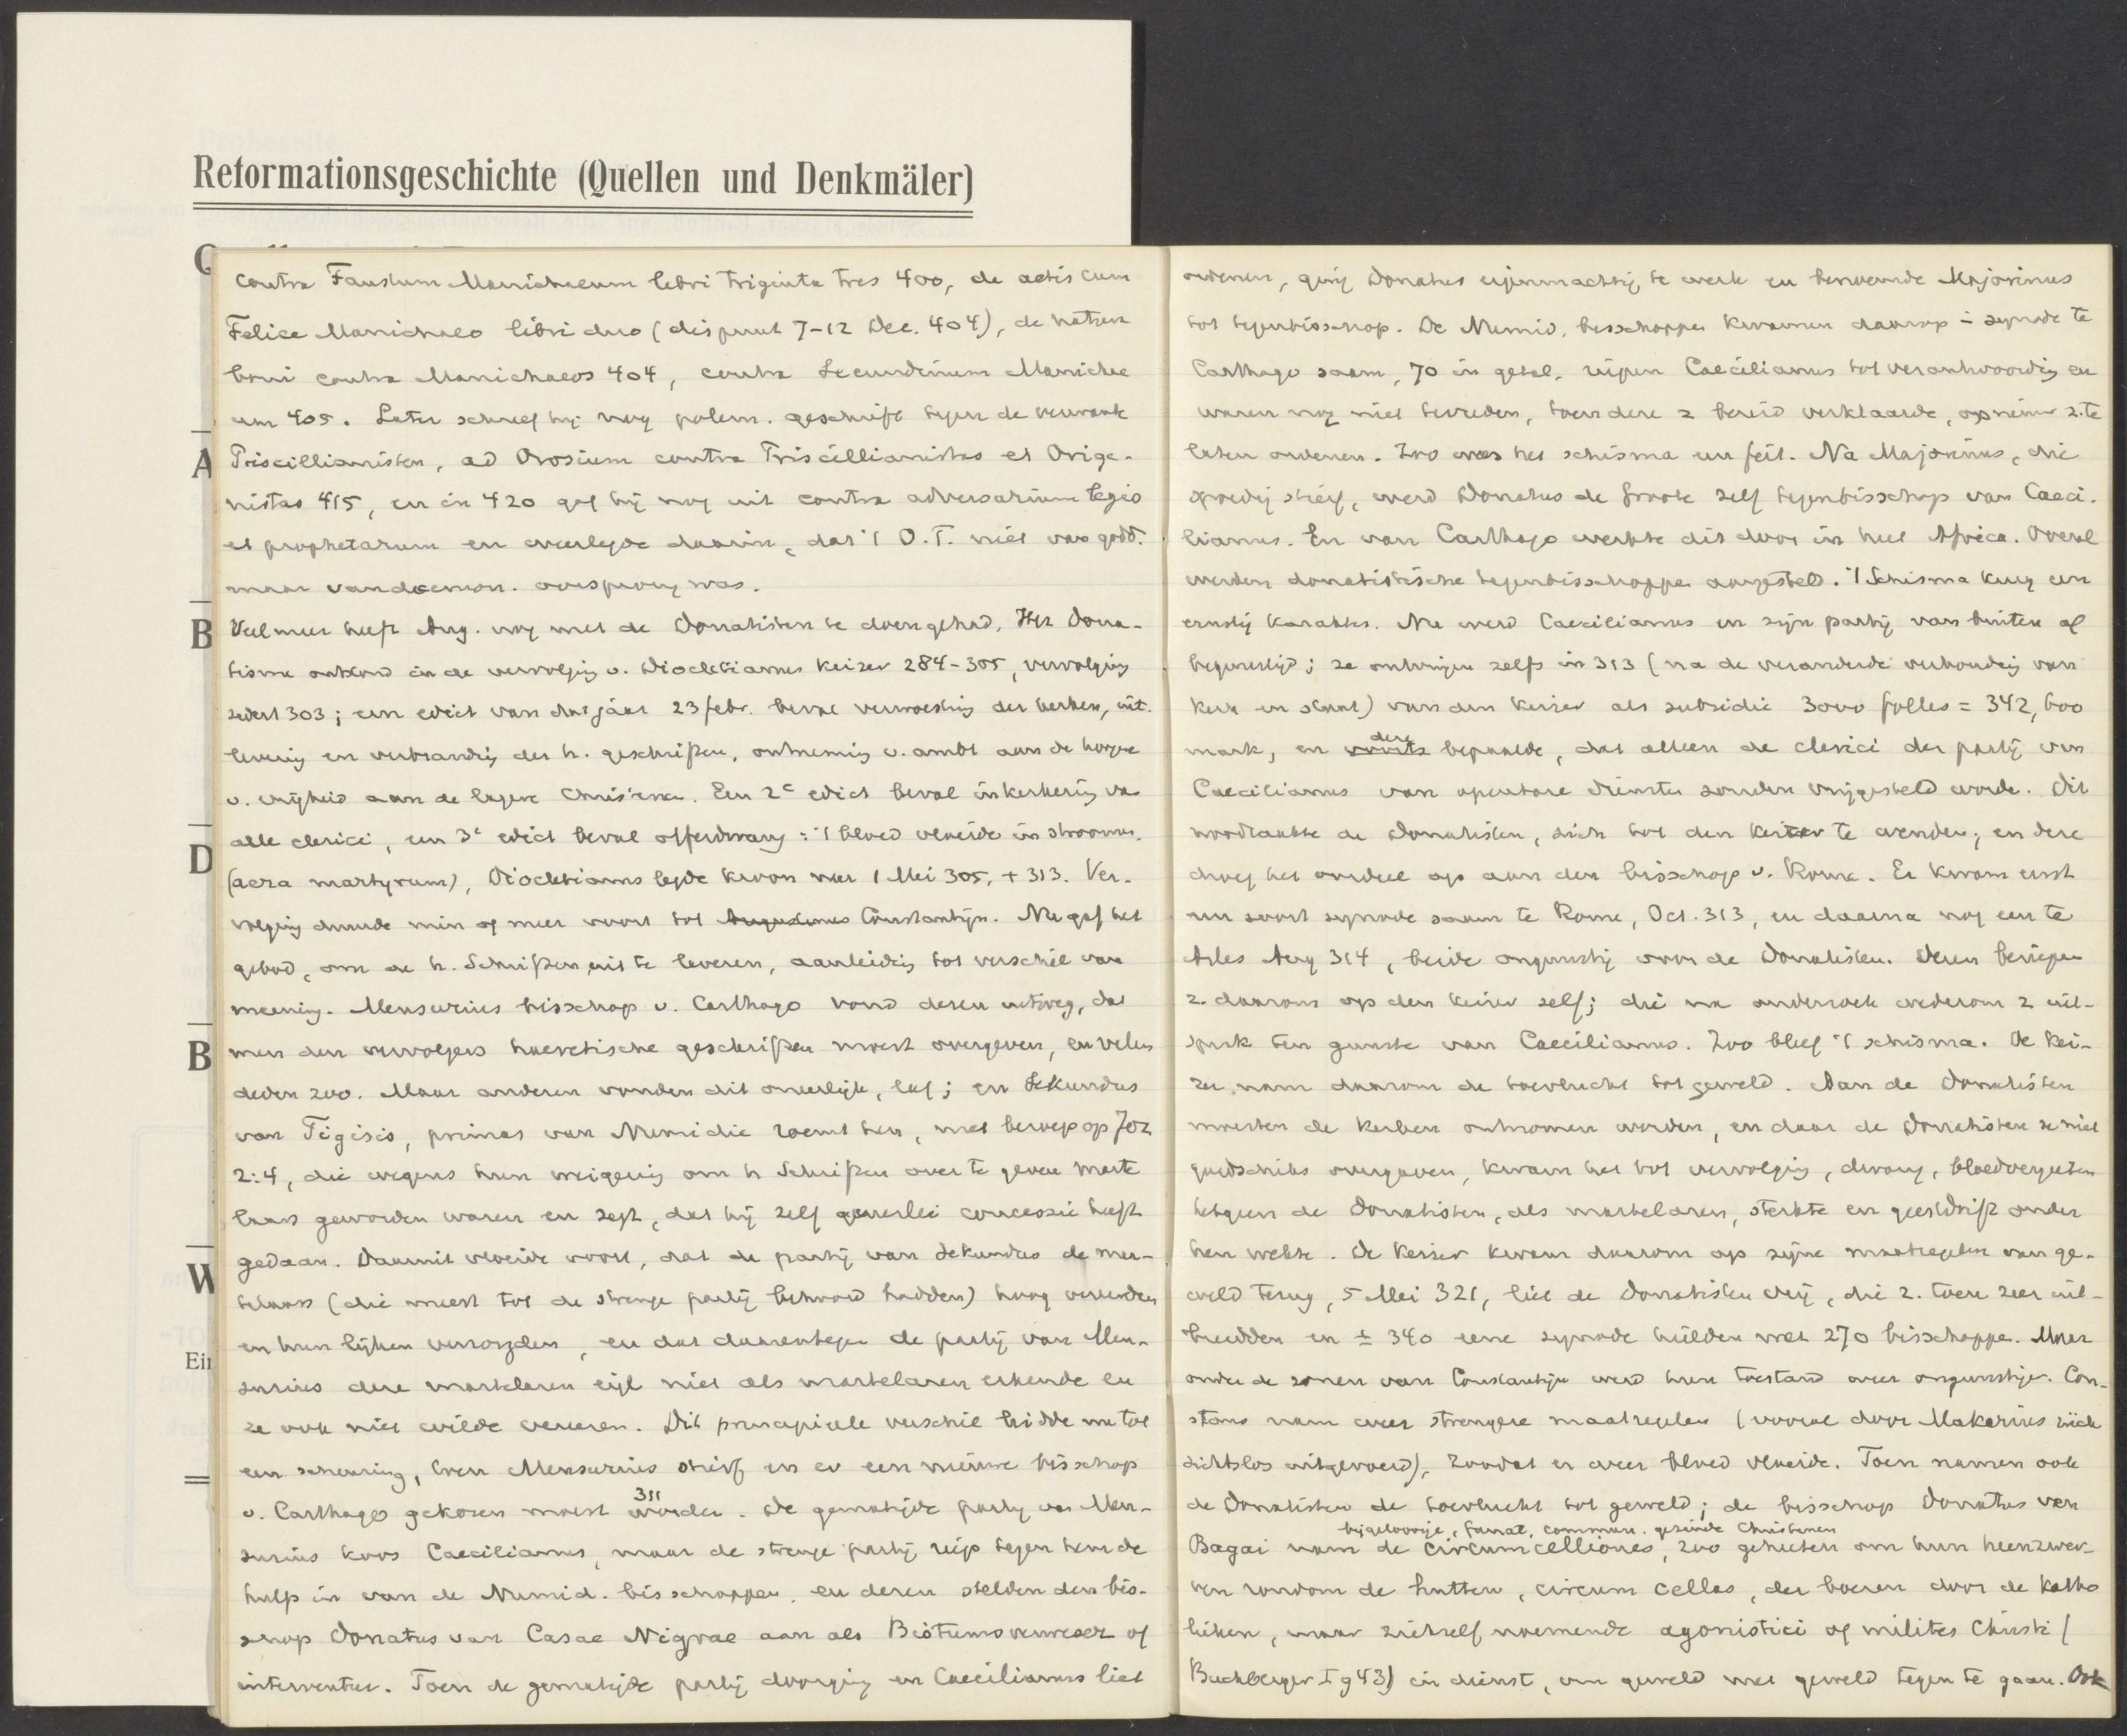 Reformationsgeschichte (Quellen und Denkmäler)
A
B
D
B
W
Ein
contra Faustum Manichaeum libri triginta tres 400, de actis cum
Felice Manichaeo libri duo (dispuut 7-12 Dec. 404), de natura
boni contra Manichaeos 404, contra Secundinum Manichae
um 405. Later schreef hij nog polem. geschrift tegen de verwante
Priscillianisten, ad Orosium contra Priscillianistas et Orige-
nistas 415, en in 420 gaf hij nog uit contra adversarium legis
et prophetarum en weerlegde daarin, dat 't O.T. niet van godd.
maar van daemon. oorsprong was.
Veel meer heeft Aug. nog met de Donatisten te doen gehad. Het Dona-
tisme ontstond in de vervolging v. Diocletianus keizer 284-305, vervolging
sedert 303; een edict van dat jaar 23 febr. beval verwoesting der kerken, uit-
levering en verbranding der h. geschriften, ontneming v. ambt aan de hoogere
v. vrijheid aan de lagere Christenen. Een 2e edict beval inkerkering van
alle clerici, een 3e edict beval offerdwang: 't bloed vloeide in stroomen.
(aera martyrum), Diocletianus legde kroon neer 1 Mei 305, + 313. Ver-
volging duurde min of meer voort tot Augustinus Constantijn. Nu gaf het
gebod, om de h. Schriften uit te leveren, aanleiding tot verschil van
meening. Mensurius bisschop v. Carthago vond dezen uitweg, dat
men den vervolgers haeretische geschriften moest overgeven, en velen
deden zoo. Maar anderen vonden dit oneerlijk, laf; en Sekundus
van Tigisis, primas van Numidie roemt hen, met beroep op Joz
2:4, die wegens hun weigering om h Schriften over te geven marte
laars geworden waren en zegt, dat hij zelf generlei concessie heeft
gedaan. Daaruit vloeide voort, dat de partij van Sekundus de mar-
telaars (die meest tot de strenge partij behoord hadden) hoog vereerden
en hun lijken verzorgden, en dat daarentegen de partij van Men-
surius deze martelaren eigl niet als martelaren erkende en
ze ook niet wilde vereeren. Dit principieele verschil leidde nu tot
een scheuring, toen Mensurius stierf en er een nieuwe bisschop
v. Carthago gekozen moest worden 311. De gematigde partij van Men-
surius koos Caecilianus, maar de strenge partij riep tegen hem de
hulp in van de Numid. bisschoppen, en dezen stelden den bis-
schop Donatus van Casae Nigrae aan als Bistumsverweser of
interventor. Toen de gematigde partij doorging en Caecilianus liet
ordenen, ging Donatus eigenmachtig te werk en benoemde Majorinus
tot tegenbisschop. De Numid. bisschoppen kwamen daarop in synode te
Carthago saam, 70 in getal, riepen Caecilianus tot verantwoording en
waren nog niet tevreden, toen deze z bereid verklaarde, opnieuw z. te
laten ordenen. Zoo was het schisma een feit. Na Majorinus, die
spoedig stierf, werd Donatus de Groote zelf tegenbisschop van Caeci-
lianus. En van Carthago werkte dit door in heel Africa. Overal
werden donatistische tegenbisschoppen aangesteld. 't Schisma kreeg een
ernstig karakter. Nu werd Caecilianus en zijn partij van buiten af
begunstigd; ze ontvingen zelfs in 313 (na de veranderde verhouding van
kerk en staat) van den keizer als subsidie 3000 folles = 342,600
mark, en deze bepaalde, dat alleen de clerici der partij van
Caecilianus van openbare diensten zouden vrijgesteld worden. Dit
noodzaakte de Donatisten, zich tot den keizer te wenden; en deze
droeg het oordeel op aan den bisschop v. Rome. Er kwam eerst
een soort synode saam te Rome, Oct. 313, en daarna nog een te
Arles Aug 314, beide ongunstig voor de Donatisten. Dezen beriepen
z. daarom op den keizer zelf; die na onderzoek wederom z uit-
sprak ten gunste van Caecilianus. Zoo bleef 't schisma. De kei-
zer nam daarom de toevlucht tot geweld. Aan de Donatisten
moesten de kerken ontnomen worden, en daar de Donatisten ze niet
goedschiks overgaven, kwam het tot vervolging, dwang, bloedvergieten
hetgeen de Donatisten, als martelaren, sterkte en geestdrift onder
hen wekte. De keizer kwam daarom op zijne maatregelen van ge-
weld terug, 5 Mei 321, liet de Donatisten vrij, die z. toen zeer uit-
breidden en ± 340 eene synode hielden met 270 bisschoppen. Maar
onder de zonen van Constantijn werd hun toestand weer ongunstiger. Con-
stans nam weer strengere maatregelen (vooral door Makarius rück
sichtslos uitgevoerd), zoodat er weer bloed vloeide. Toen namen ook
de Donatisten de toevlucht tot geweld; de bisschop Donatus van
bijgeloovige, fanat. commun. gezinde Christenen
Bagai nam de circumcelliones, zoo geheeten om hun heenzwer-
ven rondom de hutten, circum cellas, der boeren door de Katho
lieken, maar zichzelf noemende agonistici of milites Christi (
Buchberger I 943) in dienst, om geweld met geweld tegen te gaan. Ook